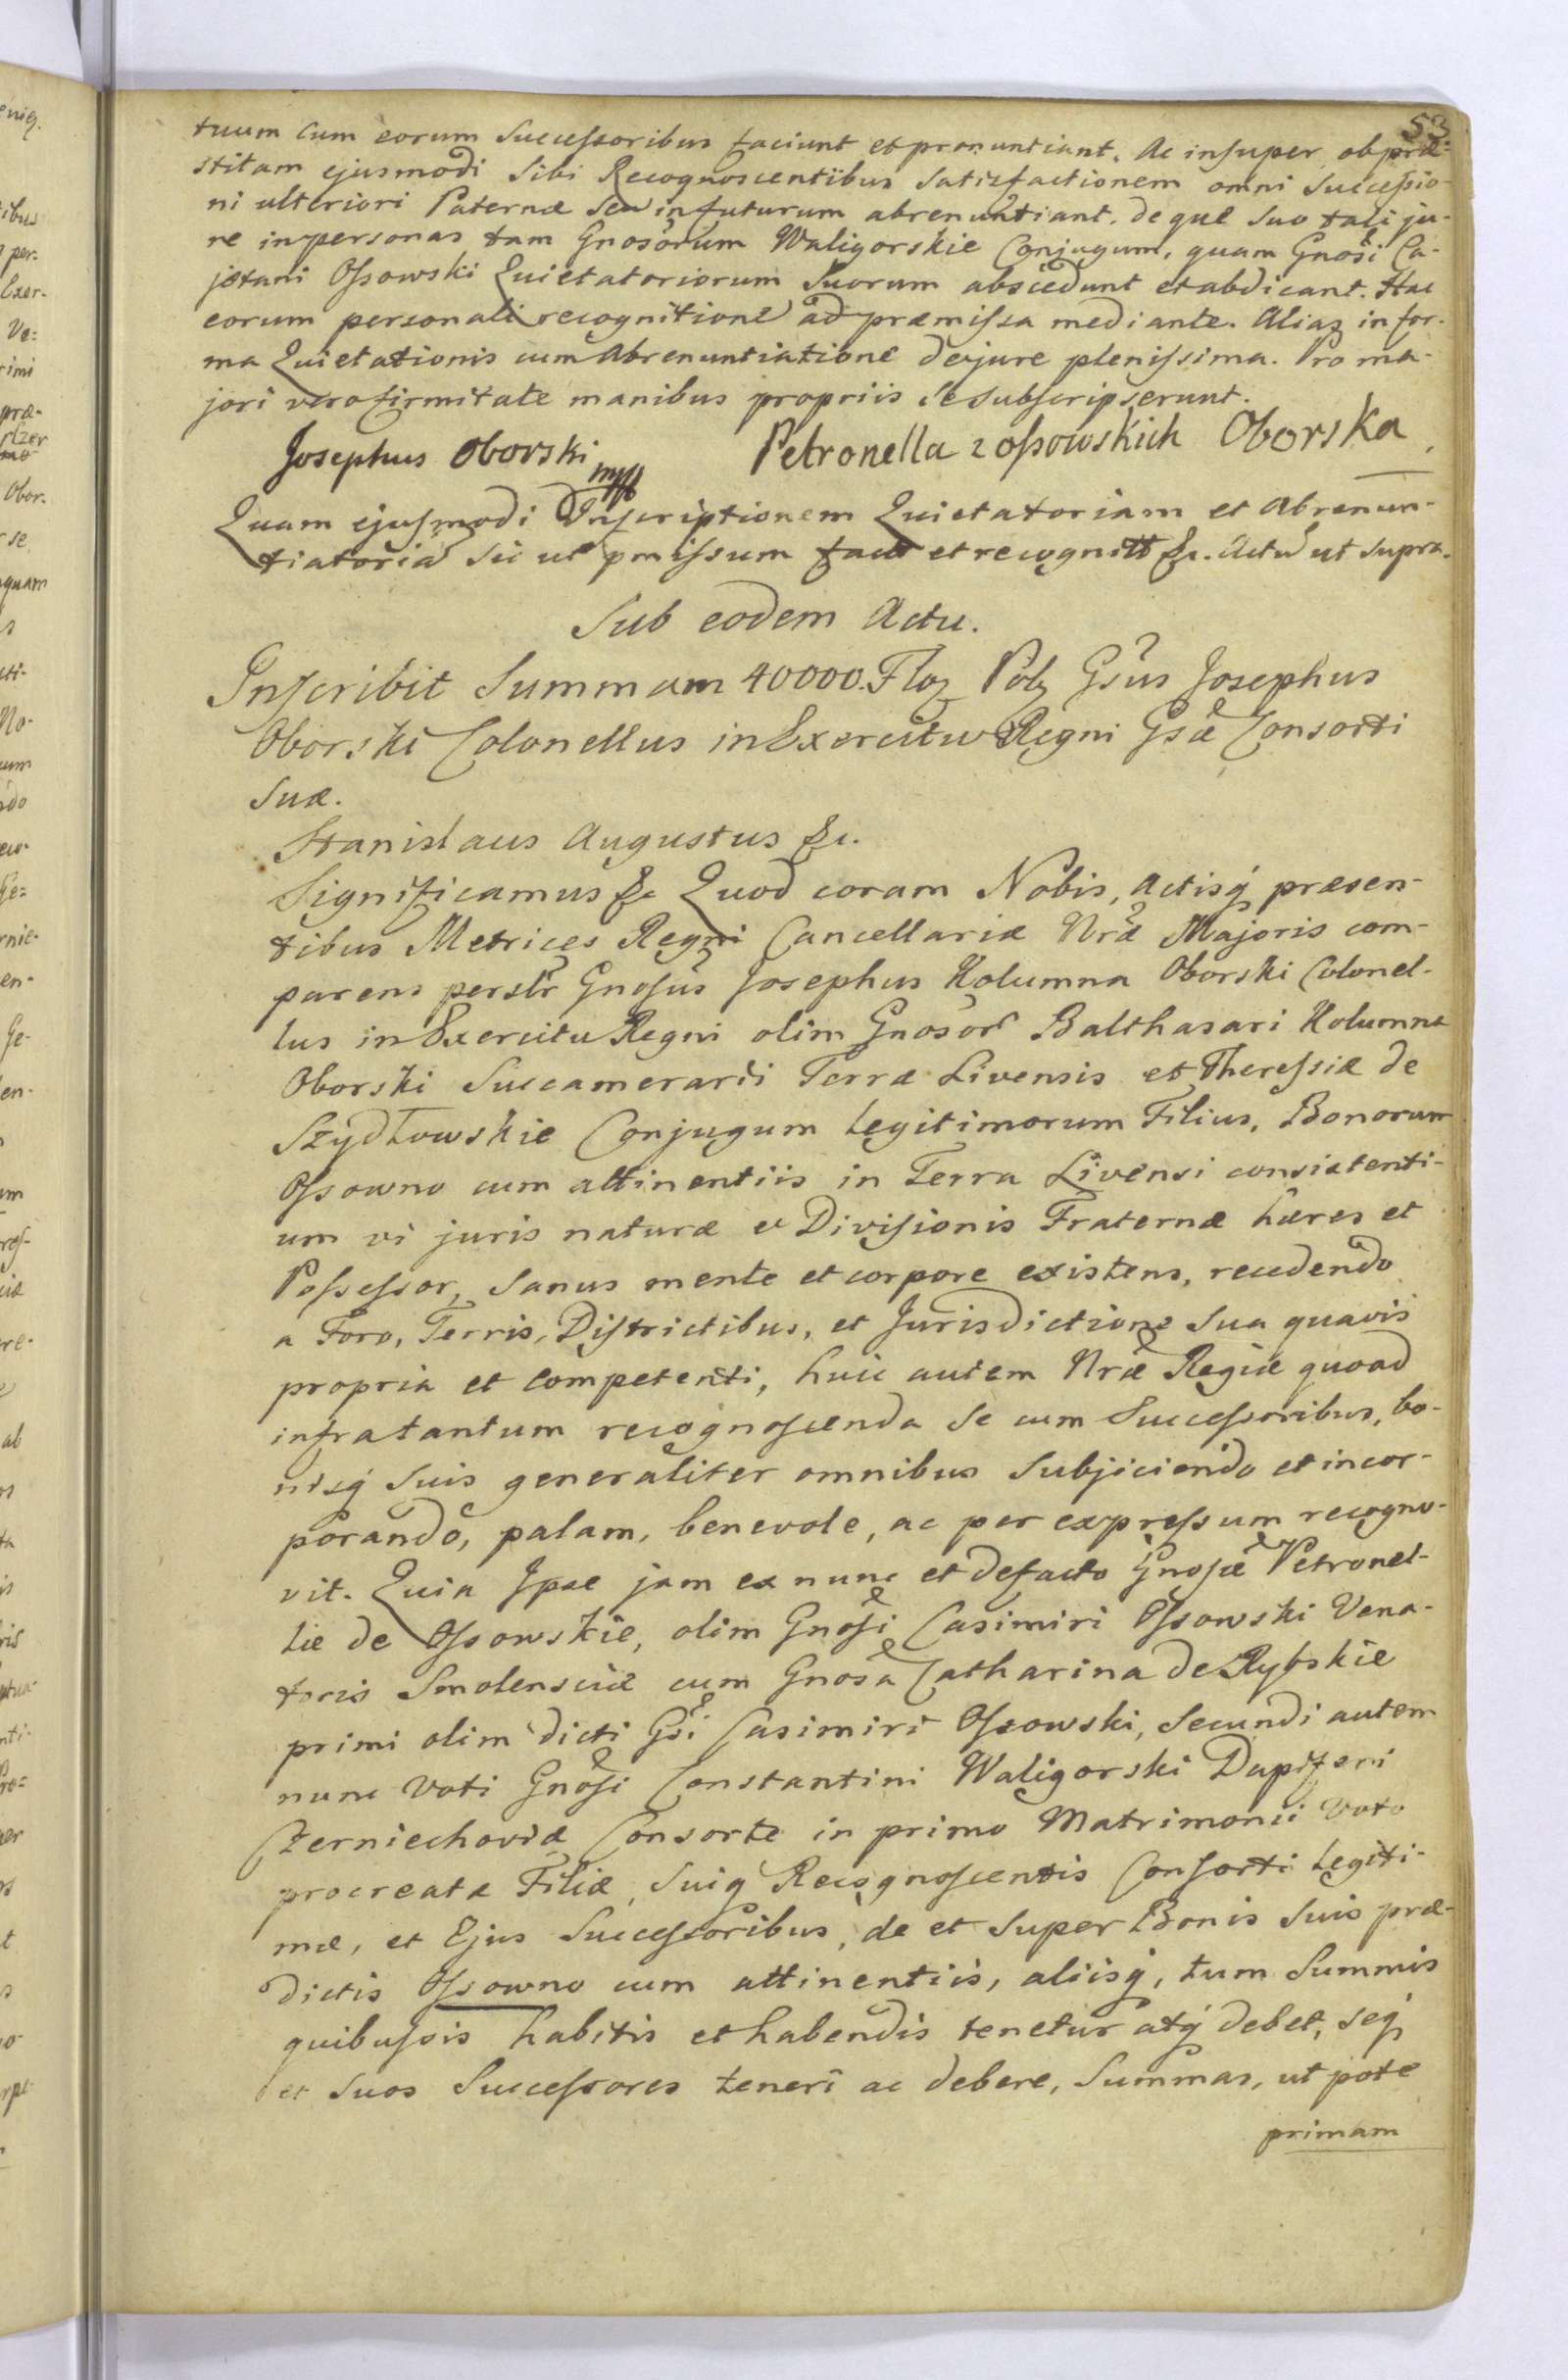 53
tuum cum eorum Successoribus faciunt et pronuntiant. Ac insuper ob præ-
stitam ejusmodi Sibi Recognoscentibus Satisfactionem omni Successio-
ni ulteriori Paternæ seu in futurum abrenuntiant. de que suo tali ju-
re in personas tam Gnosorum Waligorskie Conjugum, quam Gnosi Ca-
jetani Ossowski Quietatoriorum Suorum abscedunt et abdicant. Hac
eorum personali recognitione ad præmissa mediante. Alias in for-
ma Quietationis cum Abrenuntiatione de jure plenissima. Pro ma-
jori vero firmitate manibus propriis se subscripserunt.
Josephus Oborski mpp Petronella z ossowskich Oborska.
Quam ejusmodi Inscriptionem Quietatoriam et Abrenun-
tiatoriã sic ut pmissum et recognitt &c. Actũ ut supra.
Sub eodem Actu.
Inscribit Summam 40000. Floz Polz Gsus Josephus
Oborski Colonellus in Exercitu Regni Gsæ Consorti
Suæ.
Stanislaus Augustus &c.
Significamus &c Quod coram Nobis, Actisq præsen-
tibus Metrices Regni Cancellariæ Nræ Majoris com-
parens perslr Gnosus Josephus Kolumna Oborski Colonel-
lus in Exercitu Regni olim Gnosor Balthasari Kolumna
Oborski Succamerarii Terræ Livensis et Theressiæ de
Szydłowskie Conjugum Legitimorum Filius, Bonorum
Ossowno cum attinentiis in Terra Livensi consistenti-
um vi juris naturæ et Divisionis Fraternæ hæres et
Possessor, Sanus mente et corpore existens, recedendo
a Foro, Terris, Districtibus, et Jurisdictione Sua quavis
propria et competenti, huic autem Nræ Regiæ quoad
infra tantum recognoscenda Se cum Successoribus, bo-
nisq Suis generaliter omnibus Subjiciendo et incor-
porando, palam, benevole, ac per expressum recogno-
vit. Quia Ipse jam ex nunc et de facto Gnosæ Petronel-
læ de Ossowskie, olim Gnosi Casimiri Ossowski Vena-
toris Smolensciæ cum Gnosa Catharina de Rybskie
primi olim dicti Gsi Casimiri Ossowski, Secundi autem
nunc Voti Gnosi Constantini Waligorski Dapiferi
Czerniechoviæ Consorte in primo Matrimonii Voto
procreatæ Filiæ, Suiq Recognoscentis Consorti Legiti-
mæ, et Ejus Successoribus, de et Super Bonis Suis præ-
dictis Ossowno cum attinentiis, aliisq, tum Summis
quibussis habitis et habendis tenetur atq debet, seq
et Suos Successores teneri ac debere, Summas, ut pote
primam